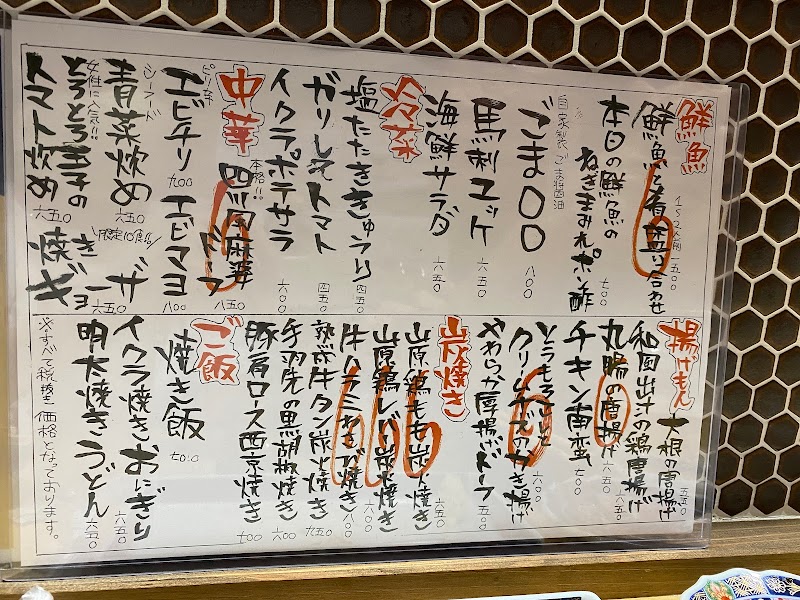 鮮魚
鮮魚の肴盛り合わせ
1~2人前 一五00
本日の鮮魚の
ねぎまみれポン酢
七00
自家製ごま醤油
ごま00
八00
馬刺ユッケ
六五0
海鮮サラダ
冷菜
塩たたききゅうり
四五0
ガリしそトマト
四五0
イクラポテサラ
六00
中華
本格!!
四川麻婆
ドーフ
八五0
エビチリ
九00
エビマヨ
八00
青菜炒め
六五0
限定10食!!
焼き
ギョーザ
六五0
女性に人気!!
とろとろ玉子の
トマト炒め
六五0
揚げもん
大根の唐揚げ
五五0
和風出汁の鶏唐揚げ
六五0
丸腸の唐揚げ
六五0
チキン南蛮
七00
とうもろこしと
クリームチーズのかき揚げ
六00
やわらか厚揚げドーフ
五00
炭焼き
山原鶏もも炭火焼き
六五0
山原鶏レバー炭火焼き
六00
牛ハラミわさび焼き
八00
熟成牛タン炭火焼き
九五0
手羽先の黒胡椒焼き
六00
豚肩ロース西京焼き
七00
ご飯
焼き飯
七00
イクラ焼きおにぎり
六五0
明太焼きうどん
六五0
※すべて税抜き価格となっております。